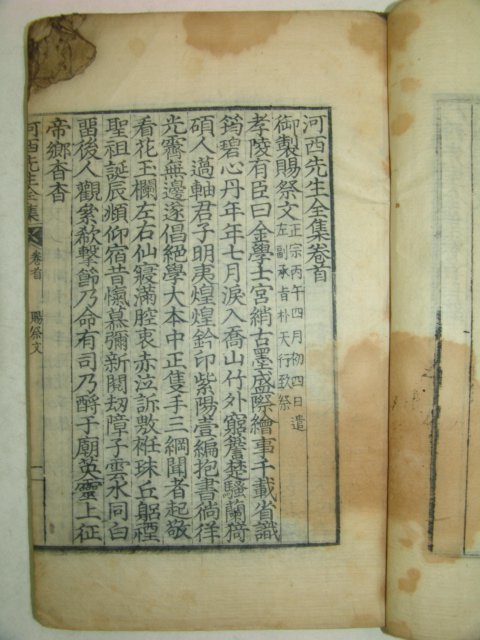 河西先生全集卷首
御製賜祭文
正宗丙午四月初四日遣
左副承旨朴天行致祭
孝陵有臣曰金學士宮綃古墨盛際繪事千載省識
筠碧心丹年年七月淚入喬山竹外窮簷楚騷蘭猗
碩人薖軸君子明夷煌煌鈐印紫陽壹編抱書徜徉
光霽無邊遂倡絕學大本中正隻手三綱聞者起敬
看花王欄左右仙寢滿腔衷赤泣訴敷衽珠丘躬禋
聖祖誕辰頫仰宿昔愾慕彌新閱刼障子雲水同白
畱後人觀衆欷擊節乃命有司乃酹于廟英靈上征
帝鄉杳杳
河西先生全集 卷首 賜祭文 一